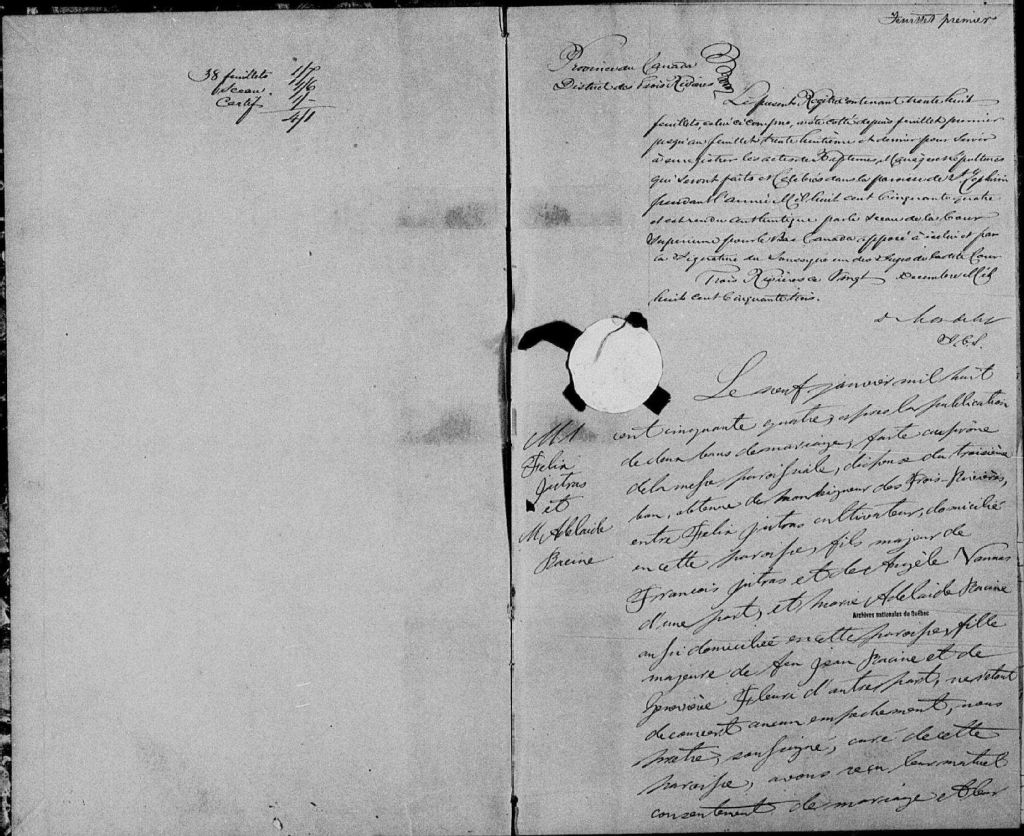 38 feuillets 1/7
Sceau 1/6
Certif 1/-
4/1
Feuillet premier
Province du Canada
District des Trois Rivières
Le présent Registre contenant trente huit
feuillets, celui ci compris, a été cotté depuis feuillet premier
jusqu'au feuillet trente huitième et dernier pour servir
à enregistrer les actes de Baptêmes, Mariages et Sépultures
qui seront faits et célébrés dans la paroisse de St Zéphirin
pendant l'année Mil huit cent Cinquante quatre
et est rendu authentique par le Sceau de la Cour
Supérieure pour le Bas Canada, apposé à icelui et par
la Signature du Soussigné un des Juges de la dite Cour
Trois Rivières ce Vingt Decembre Mil
huit cent Cinquante trois.
D Mondelet
J.C.S.
M 1
Felix
jutras
et
M Adelaide
Racine
Le neuf janvier mil huit
cent cinquante quatre, après la publication
de deux bans de mariage, faite au prône
de la messe paroissiale, dispense du troisième
ban, obtenue de Monseigneur des Trois-Rivières,
entre Felix jutras cultivateur, domicilié
en cette paroisse, fils majeur de
François jutras et de Angèle Vannas
d'une part, et marie Adelaide Racine
Archives nationales du Québec
aussi domiciliée en cette paroisse, fille
majeure de feu jean Racine et de
Geneviève Fleuri d'autre part, ne s'étant
découvert aucun empêchement, nous
prêtre, soussigné, curé de cette
paroisse, avons reçu leur mutuel
consentement de mariage et leur